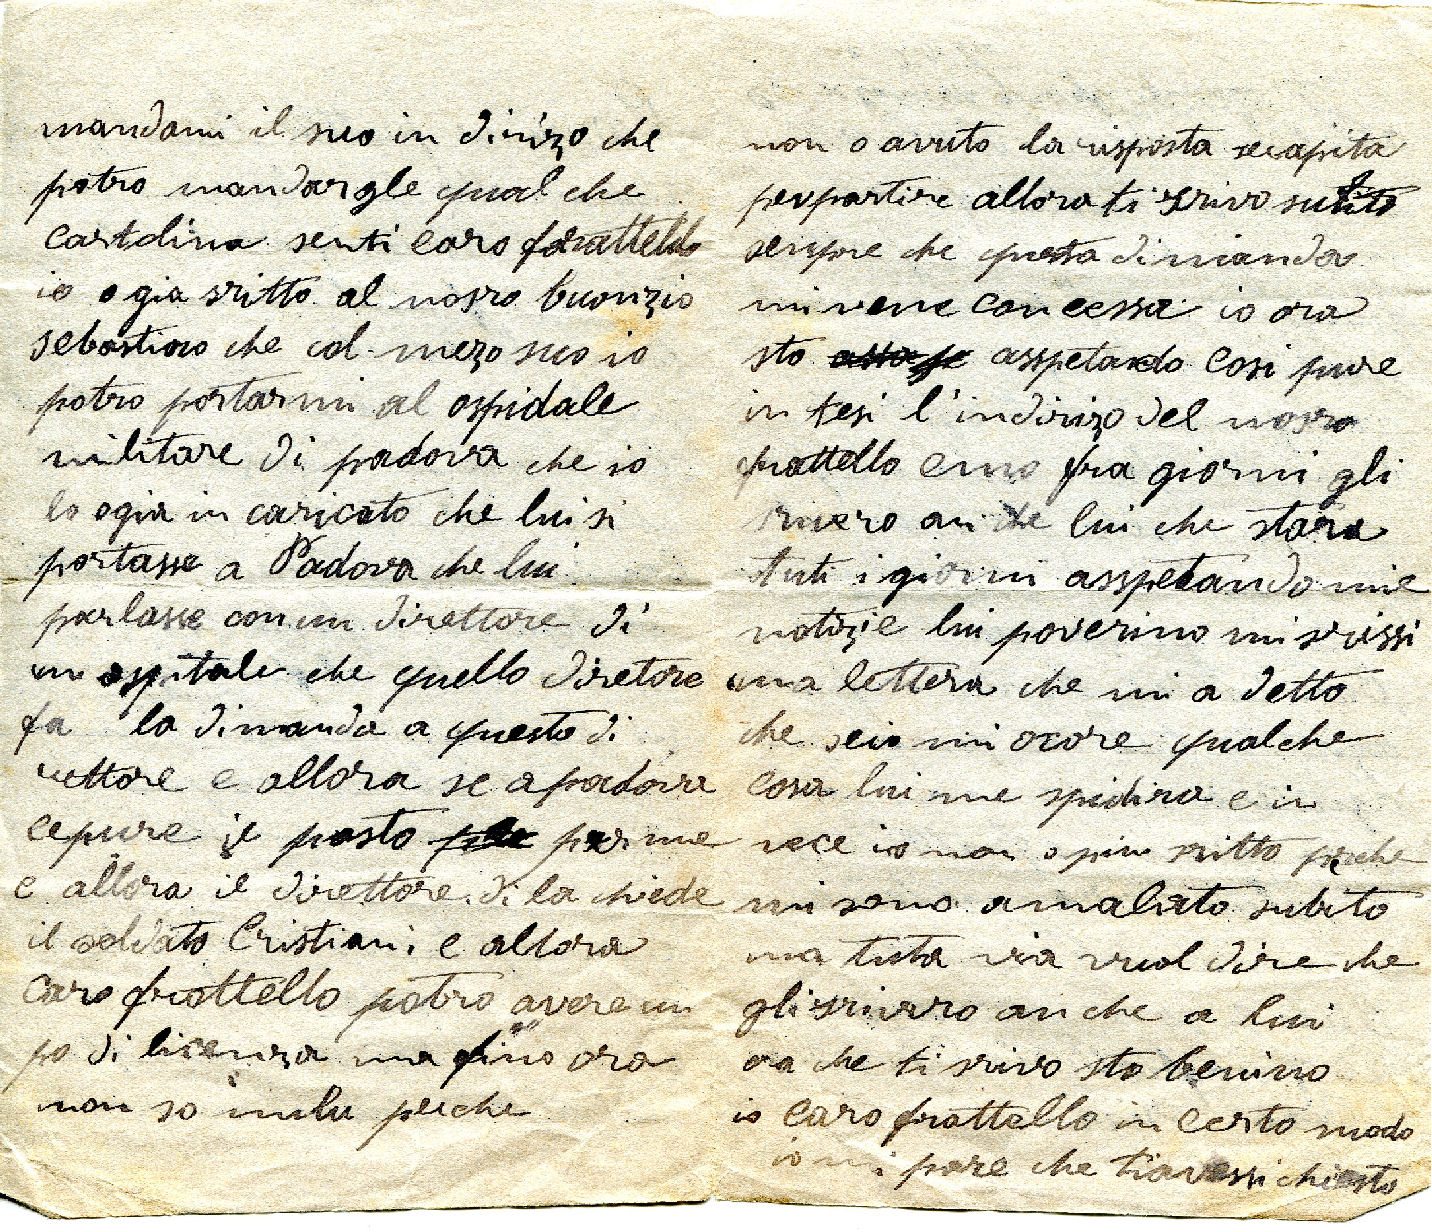 mandami il suo in dirizo che
potro mandargle qual che
cartolina senti caro frattello
io o gia sritto al nosro buonzio
sebastiano che col mezo suo io
potro portarmi al ospidale
militare di padova che io
lo ogia in caricato che lui si
portasse a Padova che lui
parlasse con un direttore di
un ospitale che quello diretore
fa la dimanda a questo di
rettore e allora se a padova
cepure il posto per me
e allora il direttore di la chiede
il soldato Cristiani e allora
caro frattello potro avere un
po di licenza ma fino ora
non so nulu perche
non o avuto la risposta
per partire allora ti srivo subito
sempre che questa dimanda
mi vene concessa io ora
sto asspetando cosi pure
in tesi l'indirizo del nosro
frattello emo fra giorni gli
srivero an che lui che stara
tuti i giorni asspetando mie
notizie lui poverino mi srissi
una lettera che mi a detto
che seio mi ocore qualche
cosa lui me spidira e in
vece io non o piu sritto perche
mi sono amalato subito
ma tuta via vuol dire che
gli srivero an che a lui
ora che ti srivo sto benino
io caro frattello in certo modo
io mi pare che tiavessi chiesto